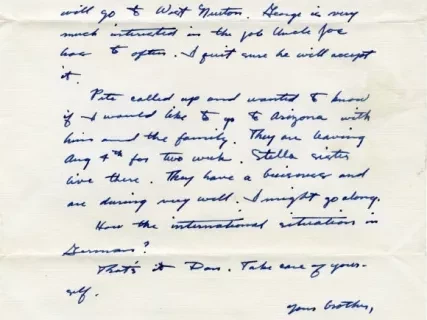 will go to West Newton. George is very
much interested in the job Uncle Joe
has to offer. I quit sure he will accept
it.
Pete called up and wanted to know
if I would like to go to Arizona with
him and the family. They are leaving
Aug 4th for two week. Stella sister
live there. They have a business and
are during very well. I might go along.
How the international situation in
Germany?
That's it Dan. Take care of your-
self.
your brother,